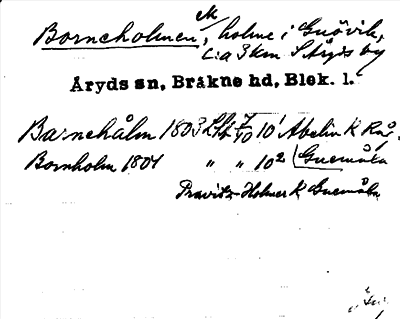 ek
Borneholmen, holme i Gnövik,
c:a 3 km S Åryds by
Åryds sn, Bräkne hd, Blek. l.
Barnehålm 1803 10¹ Abelin K
Bornholm 1804 " " 10² Guemåla
Pravitz-Holmer K Guemåla